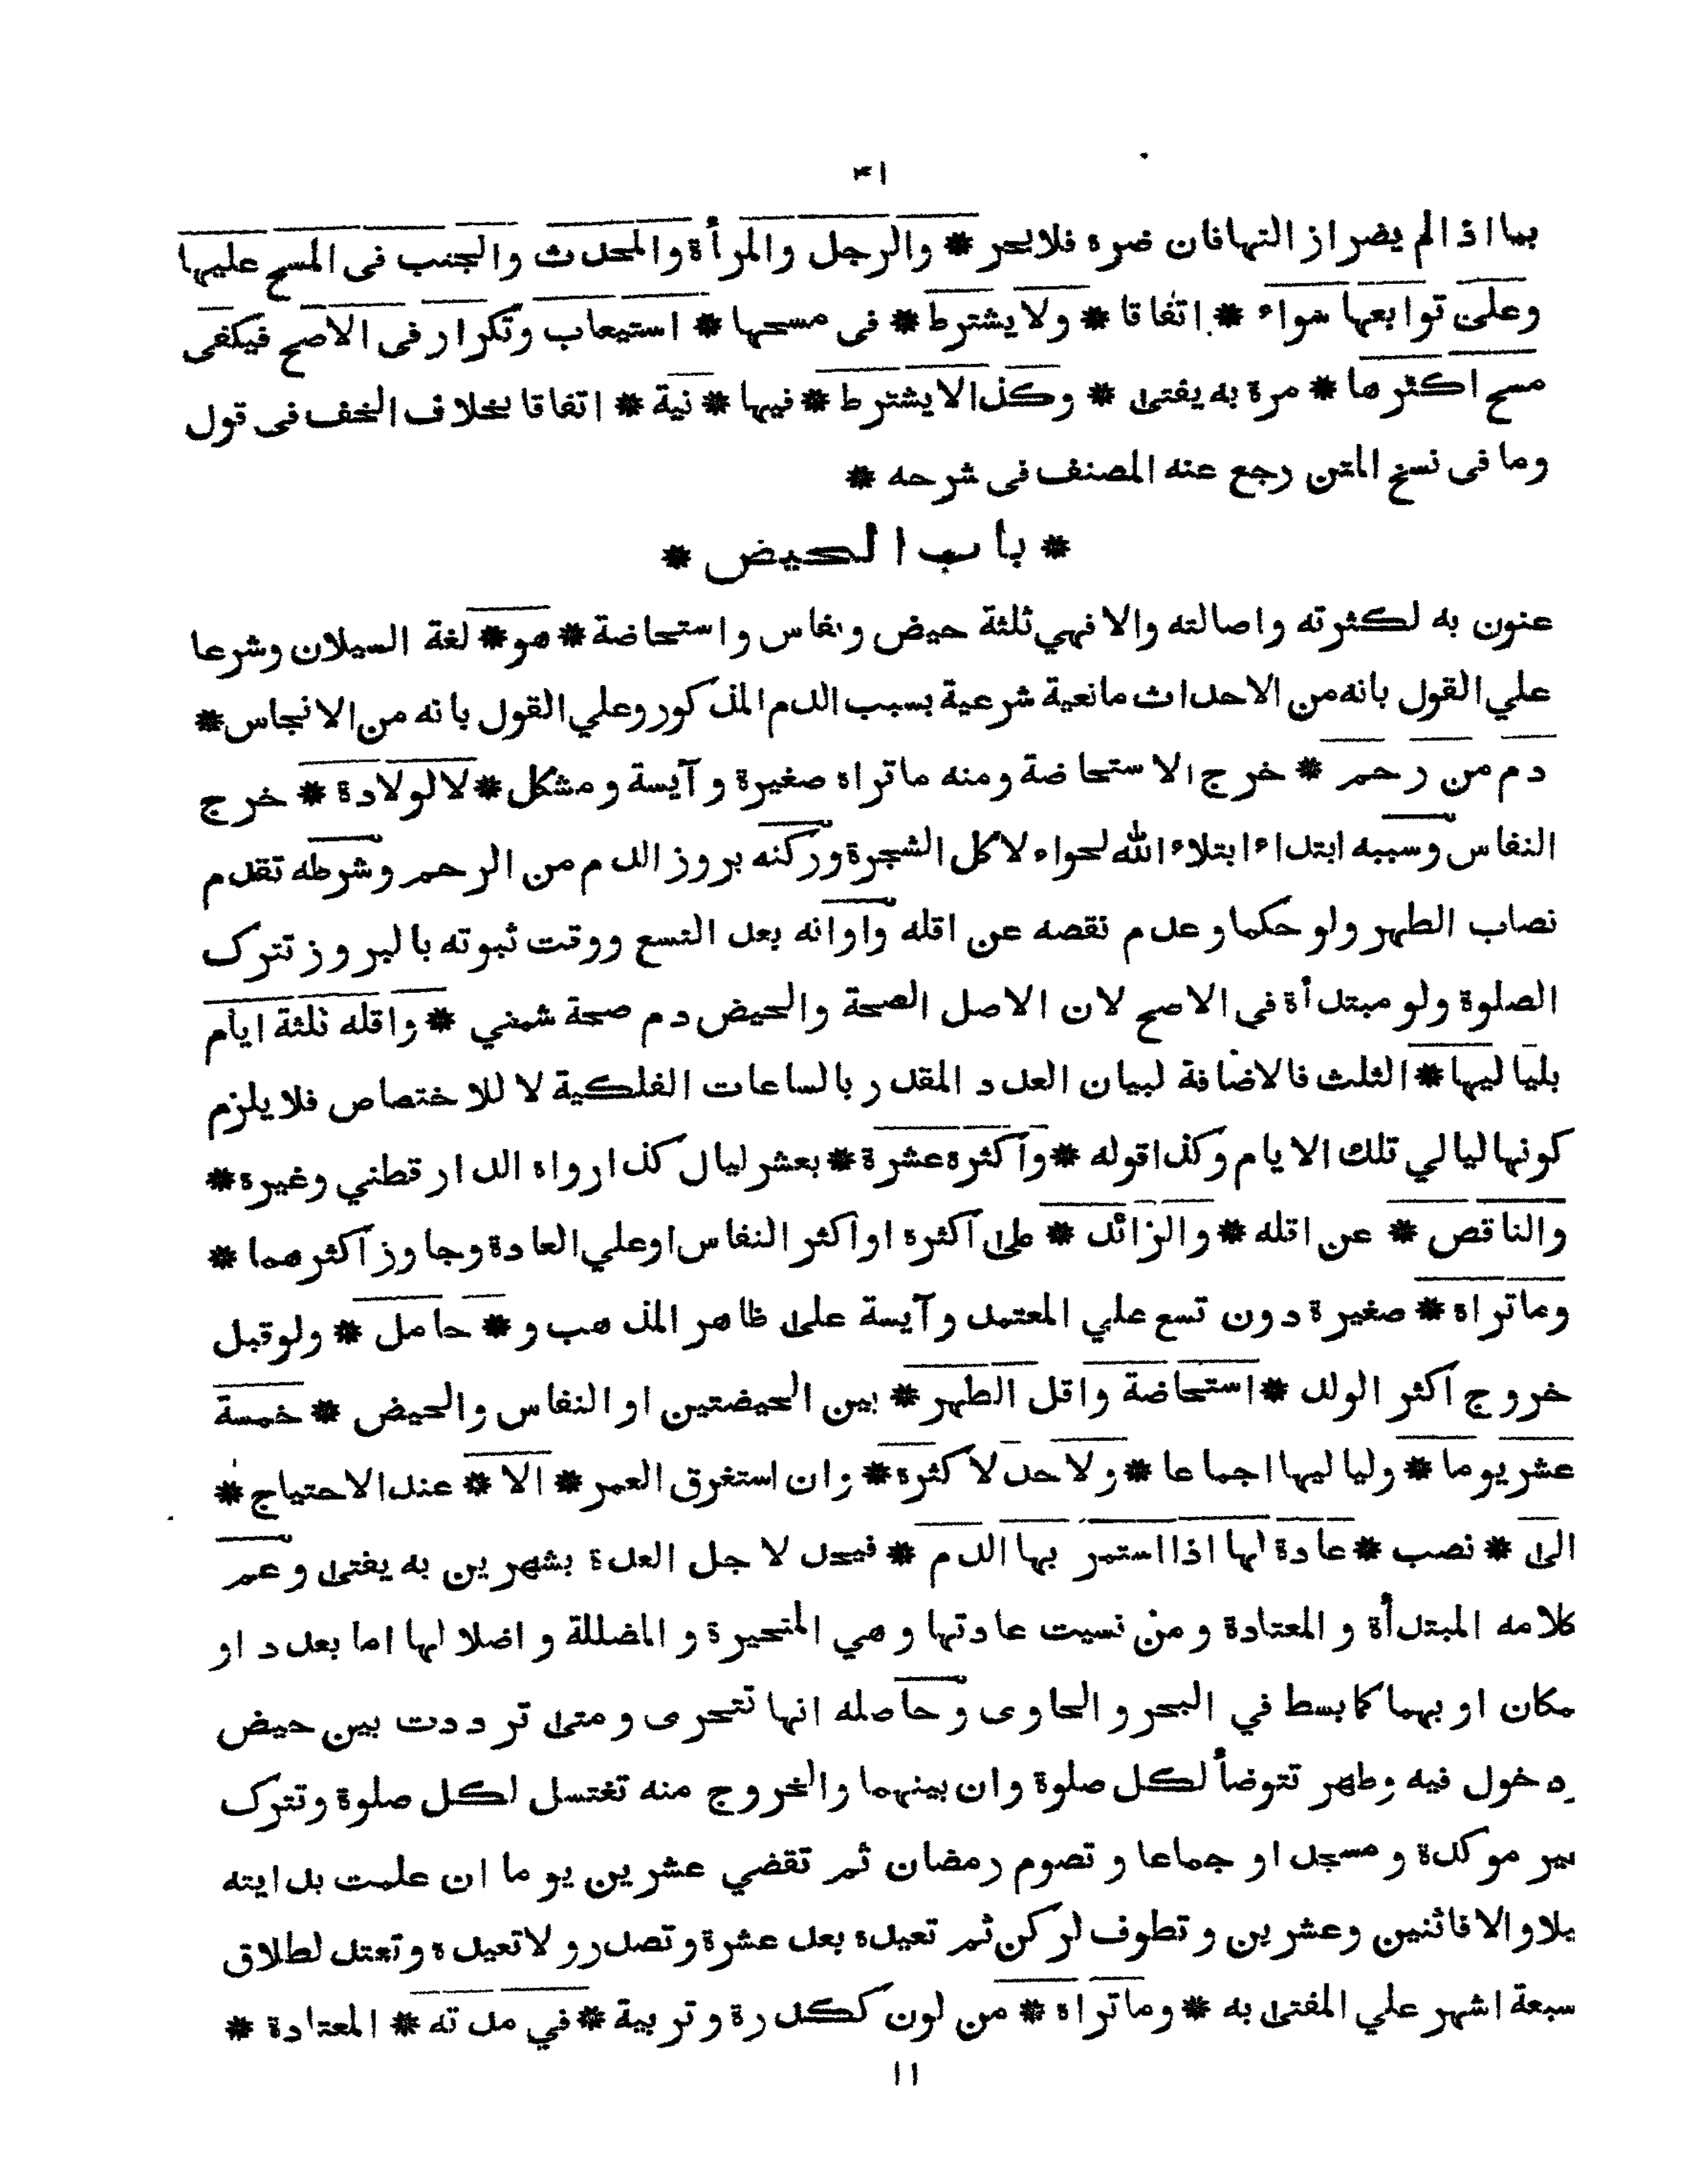 ۴۱
بما اذا لم يضر ازالتها فان ضره فلا يحر * والرجل والمرأة والمحدث والجنب فى المسح عليها
وعلى توابعها سواء * اتفاقا * ولا يشترط * فى مسحها * استيعاب وتكرار فى الاصح فيكفى
مسح اكثرها * مرة به يفتى * وكذا لا يشترط * فيها * نية * اتفاقا بخلاف الخف فى قول
وما فى نسخ المتن رجع عنه المصنف فى شرحه *
* باب الحيض *
عنون به لكثرته واصالته والا فهي ثلثة حيض ونفاس واستحاضة * هو * لغة السيلان وشرعا
علي القول بانه من الاحداث مانعية شرعية بسبب الدم المذكور وعلي القول بانه من الانجاس *
دم من رحم * خرج الاستحاضة ومنه ماتراه صغيرة وآيسة ومشكل * لا لولادة * خرج
النفاس وسببه ابتداء ابتلاء الله لحواء لاكل الشجرة وركنه بروز الدم من الرحم وشرطه تقدم
نصاب الطهر ولو حكما وعدم نقصه عن اقله واوانه بعد التسع ووقت ثبوته بالبروز تترك
الصلوة ولو مبتدأة في الاصح لان الاصل الصحة والحيض دم صحة شمني * واقله ثلثة ايام
بلياليها * الثلث فالاضافة لبيان العدد المقدر بالساعات الفلكية لا للاختصاص فلا يلزم
كونها ليالي تلك الايام وكذا قوله * واكثره عشرة * بعشر ليال كذا رواه الدار قطني وغيره *
والناقص * عن اقله * والزائد * على اكثره او اكثر النفاس او علي العادة وجاوز اكثرهما *
وماتراه * صغيرة دون تسع علي المعتمد وآيسة على ظاهر المذهب و * حامل * ولو قبل
خروج اكثر الولد * استحاضة واقل الطهر * بين الحيضتين او النفاس والحيض * خمسة
عشر يوما * ولياليها اجماعا * ولا حد لاكثره * وان استغرق العمر * الا * عند الاحتياج *
الى * نصب * عادة لها اذا استمر بها الدم * فيحد لاجل العدة بشهرين به يفتى وعم
كلامه المبتدأة و المعتادة و من نسيت عادتها و هي المتحيرة و المضللة و اضلالها اما بعدد او
مكان او بهما كما بسط في البحر و الحاوى و حاصله انها تتحرى و متى ترددت بين حيض
دخول فيه وطهر تتوضأ لكل صلوة وان بينهما والخروج منه تغتسل لكل صلوة وتترك
موكدة و مسجد او جماعا و تصوم رمضان ثم تقضي عشرين يوما ان علمت بدايته
والا فاثنين وعشرين و تطوف لركن ثم تعيده بعد عشرة وتصدر ولا تعيده وتعتد لطلاق
سبعة اشهر علي المفتى به * وماتراه * من لون ككدرة و تربية * في مدته * المعتادة *
١١